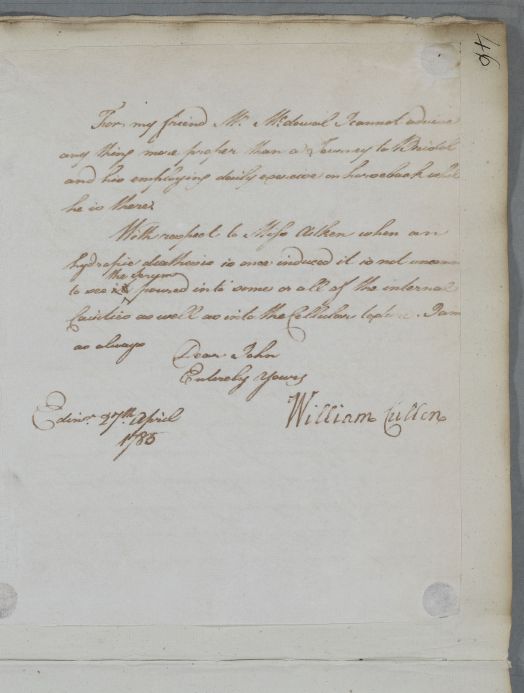 46
For my friend Mr. McDowal I cannot advise
any thing more proper than a Journey to Bristol
and his employing daily exercise on horseback while
he is there.
With respect to Miss Aitken when an
hydropic diathesis is once induced it is not uncom
the serum
to see it poured into some or all of the internal
Cavities as well as into the Cellular texture. I am
as always
Dear John
Entirely Yours
William Cullen
Edinr. 27th April
1785